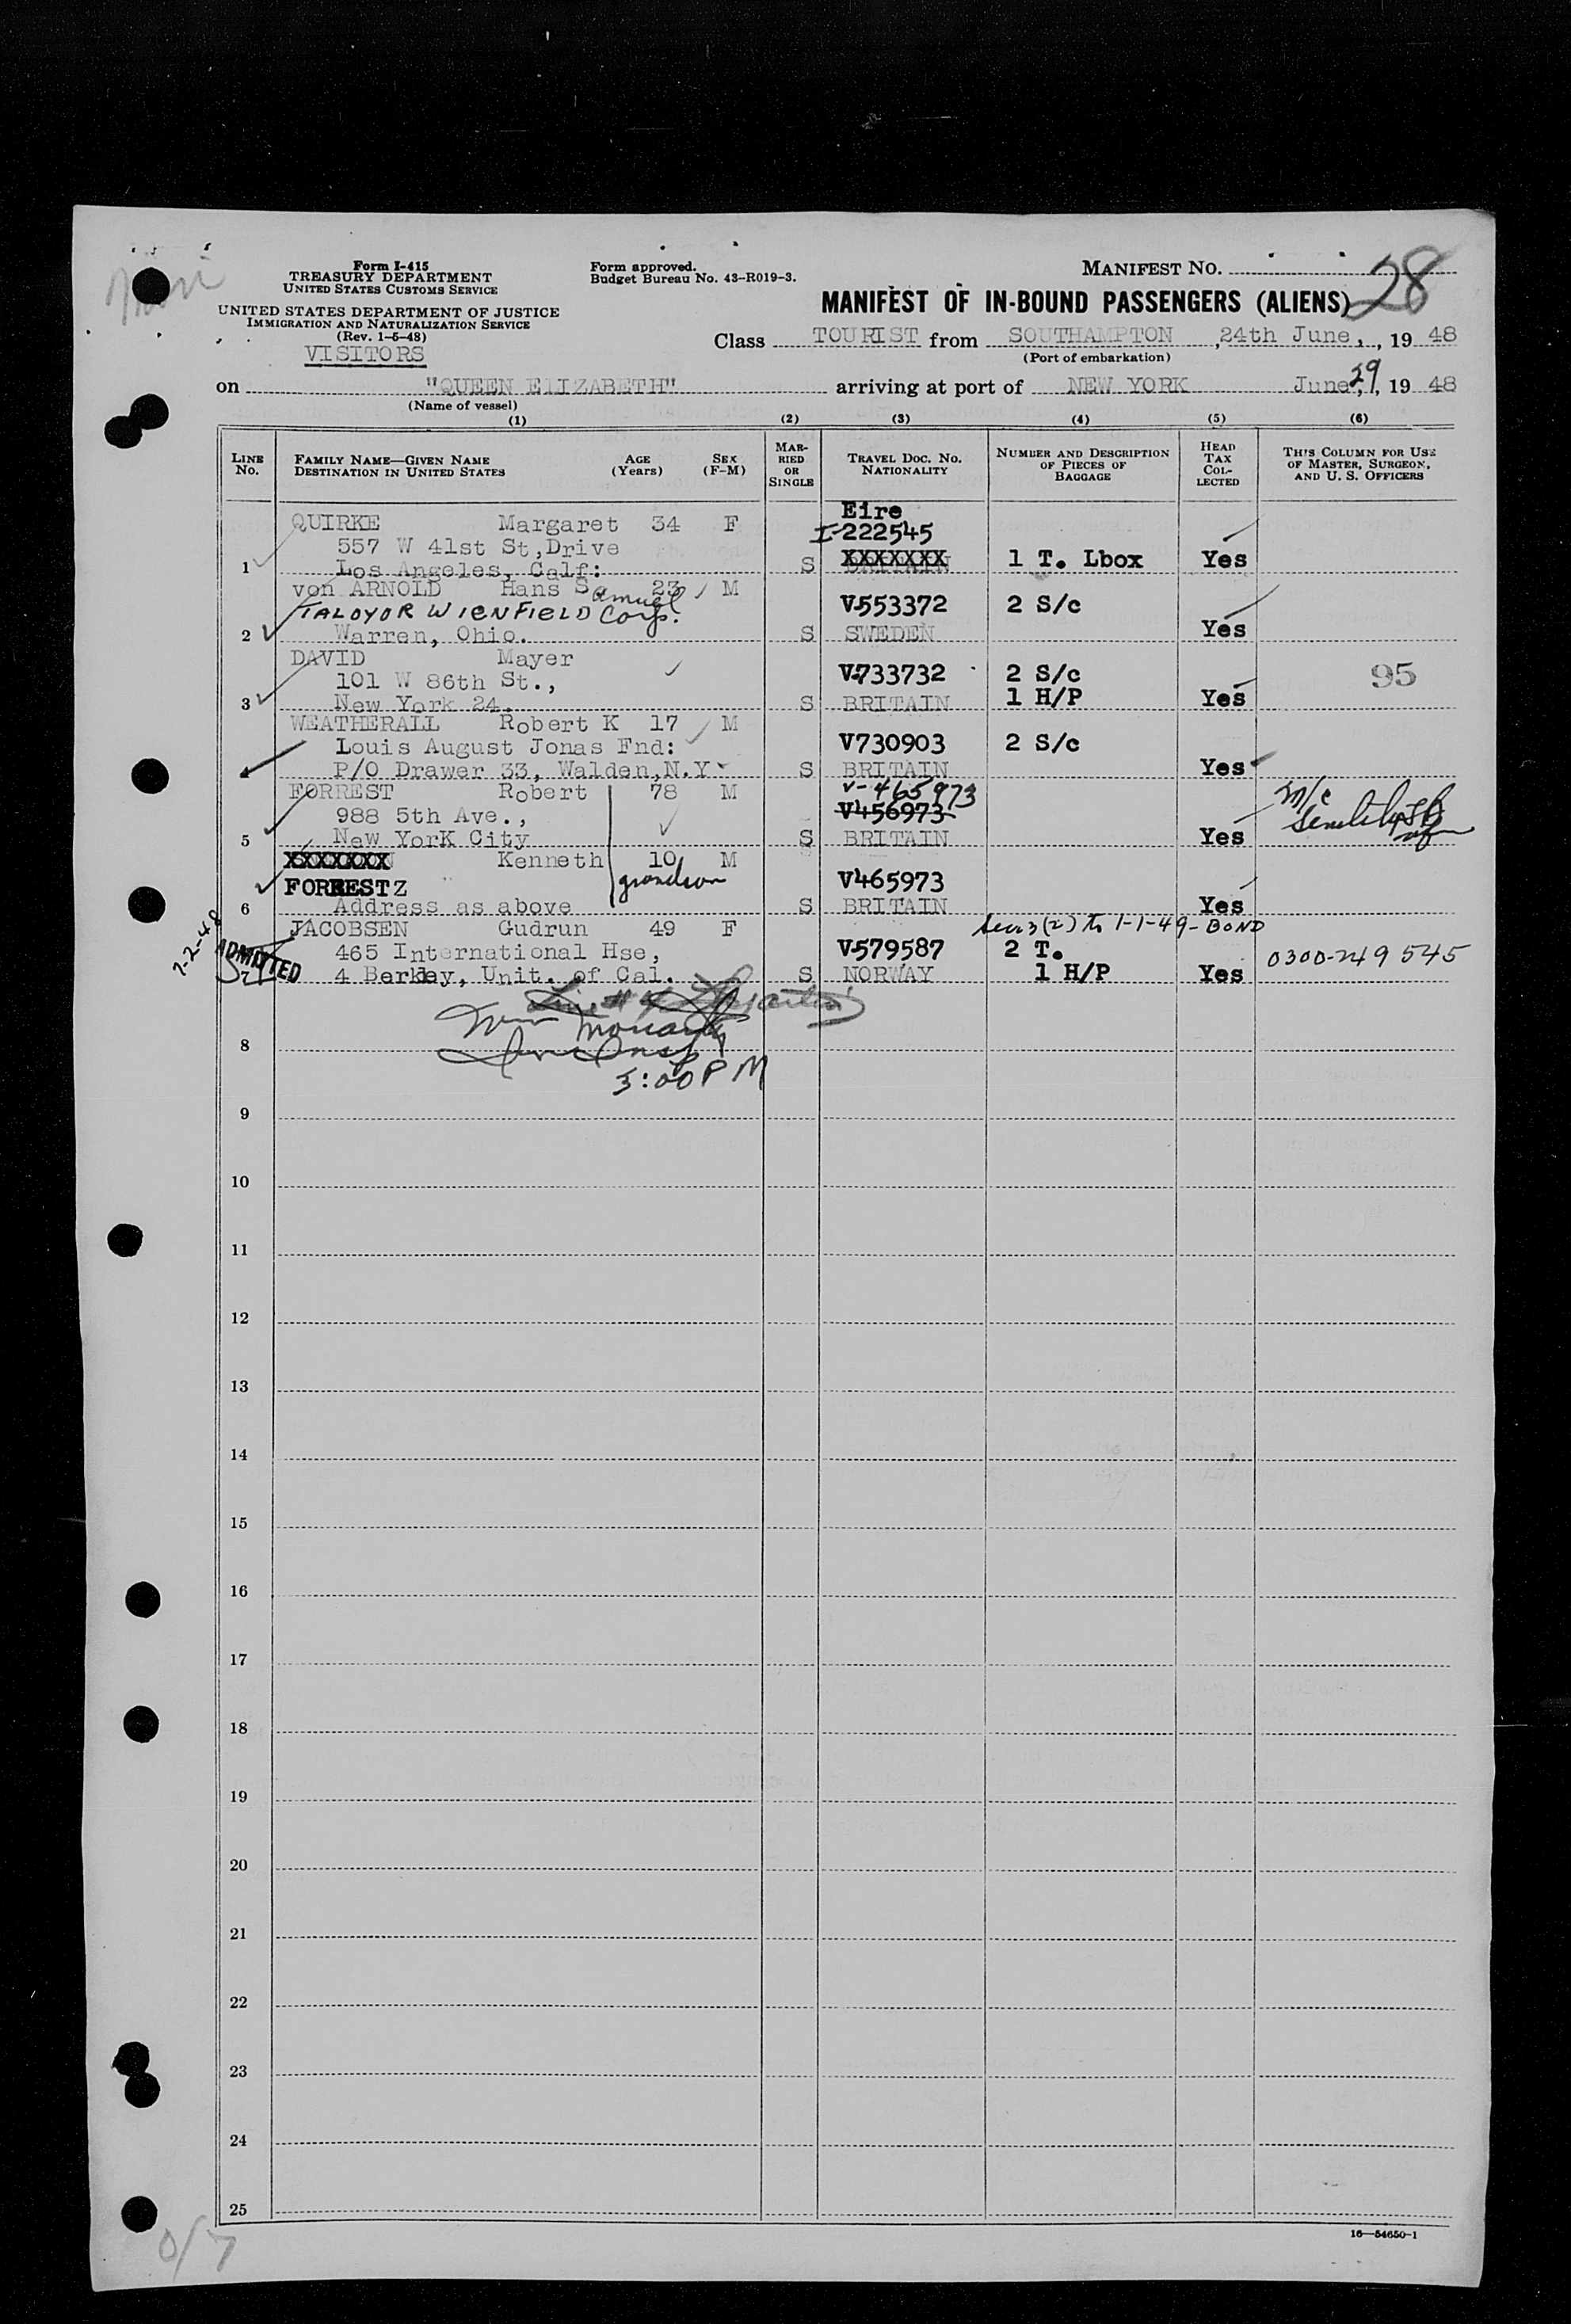 Form I-415
TREASURY DEPARTMENT
UNITED STATES CUSTOMS SERVICE
UNITED STATES DEPARTMENT OF JUSTICE
IMMIGRATION AND NATURALIZATION SERVICE
(Rev. 1-5-48)
VISITORS
Form approved.
Budget Bureau No. 43-R019-3.
MANIFEST No. 28
MANIFEST OF IN-BOUND PASSENGERS (ALIENS)
Class TOURIST from SOUTHAMPTON, 24th June, 19 48
(Port of embarkation)
on "QUEEN ElIZABETH" arriving at port of NEW YORK June 29, 19 48
(Name of vessel)
(1) (2) (3) (4) (5) (6)
LINE No. FAMILY NAME—GIVEN NAME DESTINATION IN UNITED STATES AGE (Years) SEX (F-M) MARRIED OR SINGLE TRAVEL DOC. NO. NATIONALITY NUMBER AND DESCRIPTION OF PIECES OF BAGGAGE HEAD TAX COLLECTED THIS COLUMN FOR USE OF MASTER, SURGEON, AND U. S. OFFICERS
Eire
QUIRKE Margaret 34 F I-222545
557 W 41st St,Drive
1 Los Angeles, Calf: S XXXXXXX 1 T. Lbox Yes
von ARNOLD Hans Samuel 23 M
TALOYOR WIENFIELD Corp. V553372 2 S/c
2 Warren, Ohio. S SWEDEN Yes
DAVID Mayer
101 W 86th St., V733732 2 S/c 95
3 New York 24. S BRITAIN 1 H/P Yes
WEATHERALL Robert K 17 M
Louis August Jonas Fnd: V730903 2 S/c
P/O Drawer 33, Walden,N.Y S BRITAIN Yes
FORREST Robert 78 M V-465973
988 5th Ave., V456973 M/c
5 New YorK City S BRITAIN Yes
XXXXXXX Kenneth 10 M
FORRESTZ grandson V465973
6 Address as above S BRITAIN Yes
7-2-48
JACOBSEN Gudrun 49 F Sec 3(2) to 1-1-49-BOND
ADMITTED 465 International Hse, V579587 2 T. 0300-249545
7 4 Berkley, Unit. of Cal. S NORWAY 1 H/P Yes
8
3:00 PM
9
10
11
12
13
14
15
16
17
18
19
20
21
22
23
24
25
0/7
16—54650-1